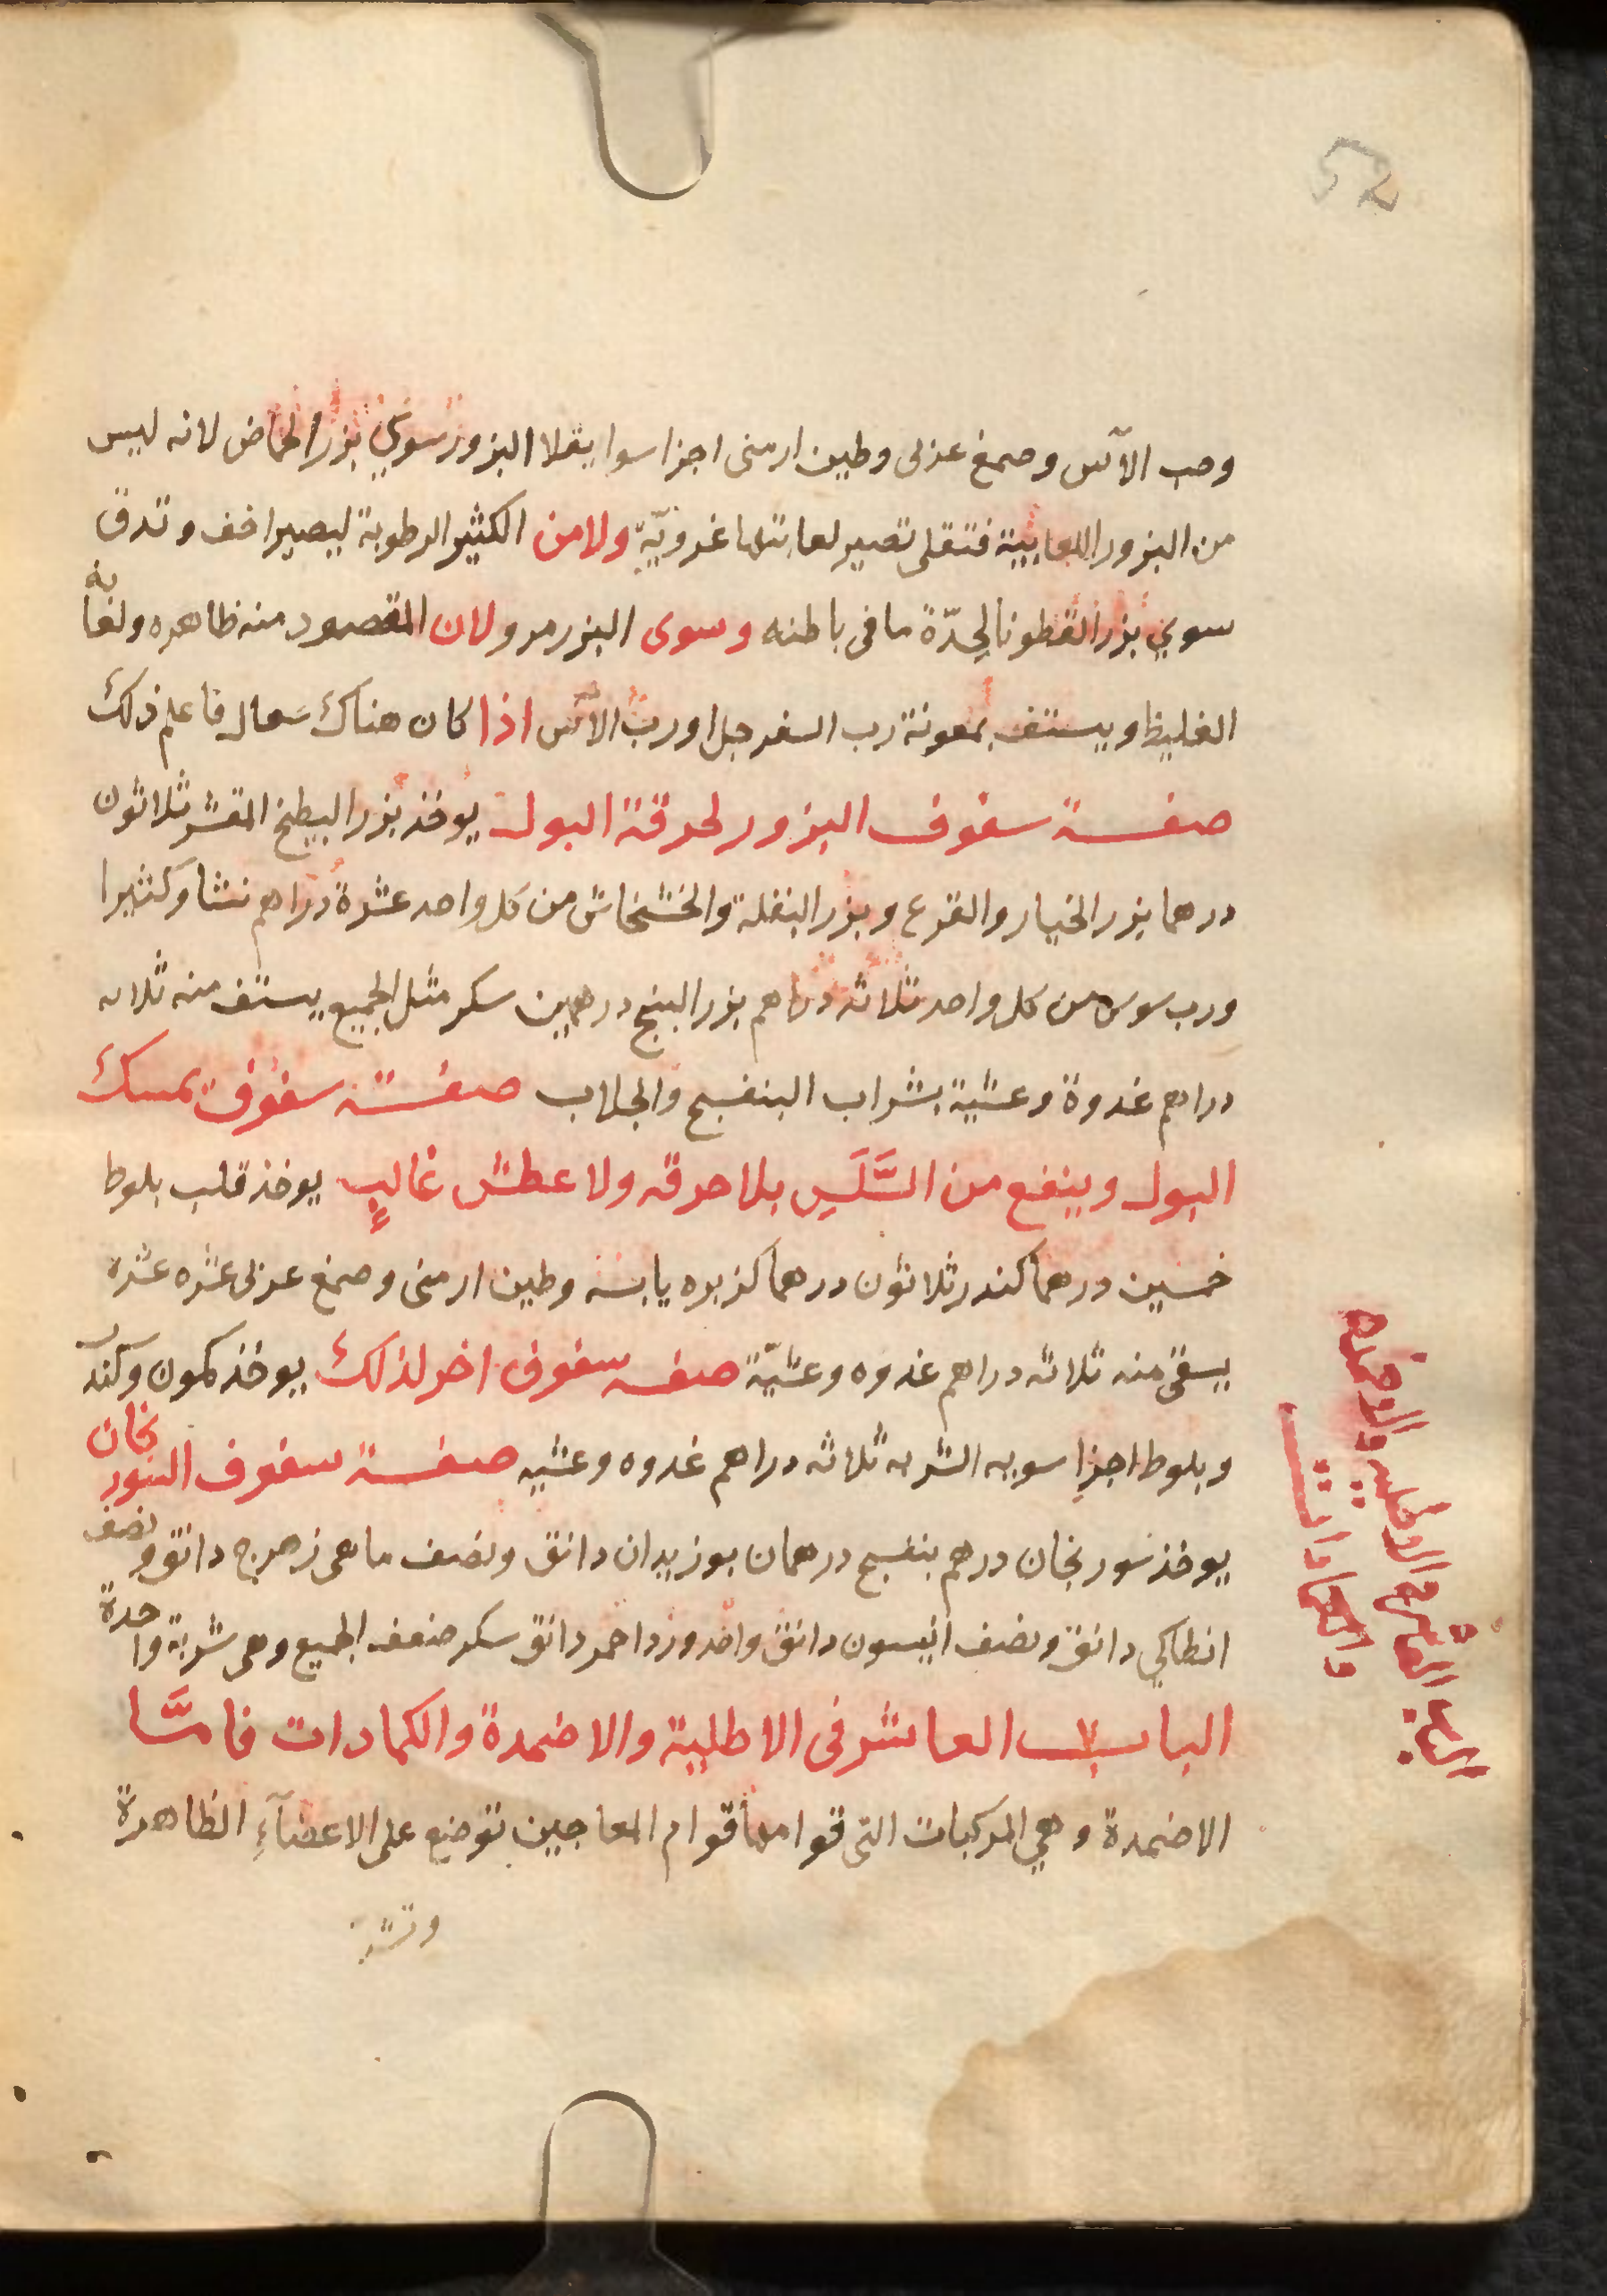 52
وحب الآس وصمغ عربى وطين ارمنى اجزا سوا يقلا البزور سوي بزر الحماض لانه ليس
من البزور اللعابية فتقلى تصير لعابتها غرويّة ولامن الكثير الرطوبة ليصير اخف وتدق
سوي بزر القطونا لحدّة ما فى باطنه وسوى البزر مرو لان المقصود منه ظاهره ولعابه
الغليظ ويستف بمعونة رب السفرجل او ربّ الآس اذا كان هناك سعال فاعلم ذلك
صفة سفوف البزور لحرقة البول يوخذ بزر البطيخ المقشر ثلاثون
درهما بزر الخيار والقرع وبزر البقلة والخشخاش من كل واحد عشرة دراهم نشا وكثيرا
ورب سوس من كل واحد ثلاثه دراهم بزر البنج درهمين سكر مثل الجميع يستف منه ثلاثه
دراهم غدوة وعشية بشراب البنفسج والجلاب صفة سفوف يمسك
البول وينفع من السَّلَسِ بلا حرقه ولا عطش غالبٍ يوخذ قلب بلوط
خمسين درهما كندر ثلاثون درهما كزبره يابسه وطين ارمنى وصمغ عربى عشره عشره
يسقى منه ثلاثه دراهم غدوه وعشيّة صفه سفوف اخر لذلك يوخذ كمون وكندر
وبلوط اجزا سويه الشربه ثلاثه دراهم غدوه وعشيه صفة سفوف السورنجان
يوخذ سورنجان درهم بنفسج درهمان بوزيدان دانق ونصف ماهى زهرج دانق ونصف
انطاكي دانق ونصف انيسون دانق واحد ورد احمر دانق سكر ضعف الجميع وهى شربة واحدة
الباب العاشر فى الاطلية والاضمدة والكمادات فامَّا
الاضمدة وهي المركبات التى قوامها قوام المعاجين توضع على الاعضآءِ الظاهرة
الباب العاشر فى الاطليه والاضمده
والكمادات